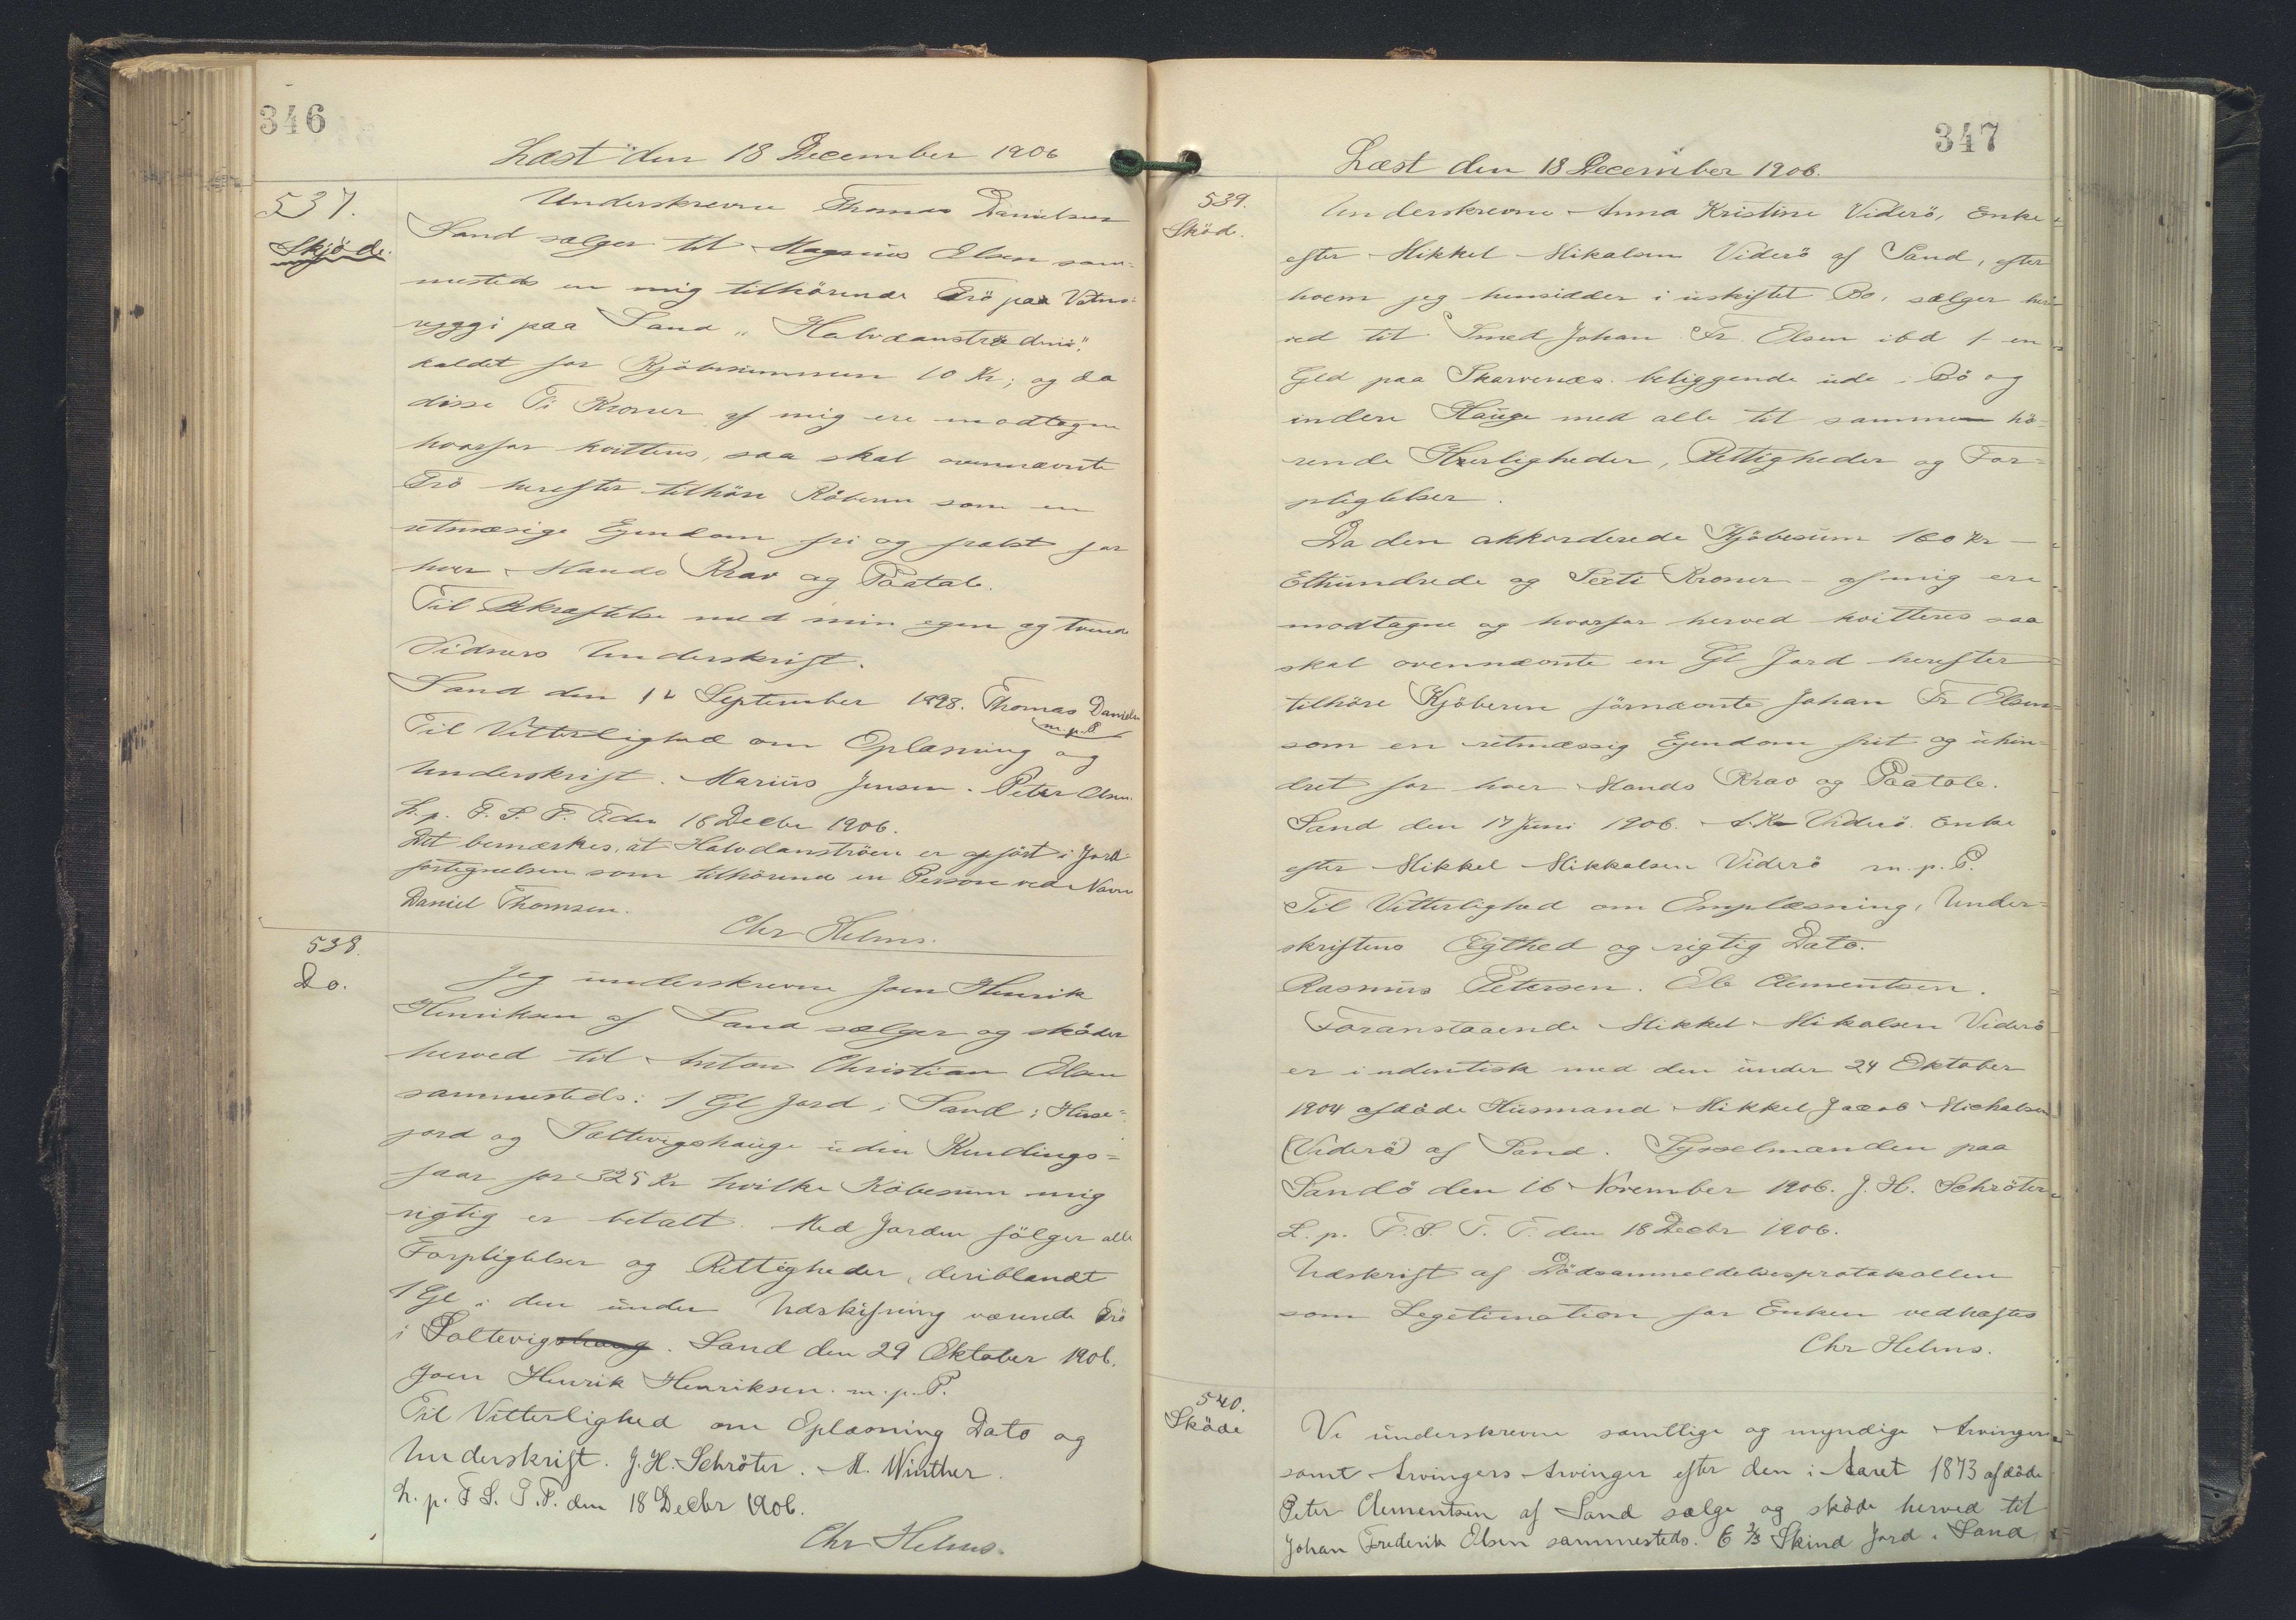 346
Læst den 18 December 1906
537.
Skjöde.
Underskrevne Thomas Danielsen
Sand sælger til Magnus Olsen sam-
mesteds en mig tilhörende Trö paa Vatns-
ryggi paa Sand "Halvdanströdni".
kaldet for Kjöbesummen 10 Kr; og da
disse Ti Kroner af mig ere modtagne
hvorfor kvitteres, saa skal ovennævnte
Trö herefter tilhöre Köberen som en
retmæsige Ejendom fri og frelst for
hver Mands Krav og Paatale.
Til Bekræftelse med min egen og tvende
Vidners Underskrift.
Sand den 12 September 1898. Thomas Danielsen
m. p. P.
Til Vitterlighed om Oplæsning og
Underskrift. Marius Jensen. Peter Olsen.
L. p. F. S. T. T. den 18 Decbr 1906.
Det bemærkes, at Halvdanströen er opfört i Jord-
fortegnelsen som tilhörende en Person ved Navn
Daniel Thomsen.
Chr Helms.
538.
Do.
Jeg underskrevne Joen Henrik
Henriksen af Sand sælger og sköder
herved til Anton Christian Olsen
sammesteds: 1 Gl Jord i Sand i Huse-
jord og Saltevigshauge uden Kendings-
faar for 325 Kr hvilke Köbesum mig
rigtig er betalt. Med Jorden fölger alle
Forpligtelser og Rettigheder, deriblandt
1 Gl i den under Udskifning værende Trö
i Saltevigshaug. Sand den 29 Oktober 1906.
Joen Henrik Henriksen. m. p. P.
Til Vitterlighed om Oplæsning Dato og
Underskrift. J. H. Schröter. M. Winther.
L. p. F. S. T. T. den 18 Decbr 1906.
Chr Helms.
347
Læst den 18 December 1906.
539.
Sköde.
Underskrevne Anna Kristine Viderö, Enke
efter Mikkel Mikalsen Viderö af Sand, efter
hvem jeg hensidder i uskiftet Bo, sælger her-
ved til Smed Johan Fr. Olsen ibd 1 en
Gld paa Skarvenæs beliggende ude i Bö og
indere Hauge med alle til sammen hö-
rende Herligheder, Rettigheder og For-
pligtelser.
Da den akkorderede Kjöbesum 160 Kr –
Ethundrede og Sexti Kroner – af mig ere
modtagne og hvorfor herved kvitteres saa
skal ovennævnte en Gl Jord herefter
tilhöre Kjöberen förnævnte Johan Fr Olsen
som en retmæssig Ejendom frit og uhin-
dret for hver Mands Krav og Paatale.
Sand den 17 Juni 1906. A. K. Viderö. Enke
efter Mikkel Mikkalsen Viderö m. p. P.
Til Vitterlighed om Omplæsning, Under-
skriftens Ægthed og rigtig Dato.
Rasmus Petersen. Ole Clementsen.
Foranstaaende Mikkel Mikalsen Viderö
er indentisk med den under 24 Oktober
1904 afdöde Husmand Mikkel Jacob Michalsen
(Viderö) af Sand. Sysselmanden paa
Sandö den 16 November 1906. J. H. Schröter.
L. p. F. S. T. T. den 18 Decbr 1906.
Udskrift af Dödsanmeldelsesprotokollen
som Legetimation for Enken vedhæftes
Chr Helms.
540.
Sköde
Vi underskrevne samtlige og myndige Arvinger
samt Arvingers Arvinger efter den i Aaret 1873 afdöde
Peter Clementsen af Sand sælge og sköde herved til
Johan Frederik Olsen sammesteds. 6 2/3 Skind Jord i Sand